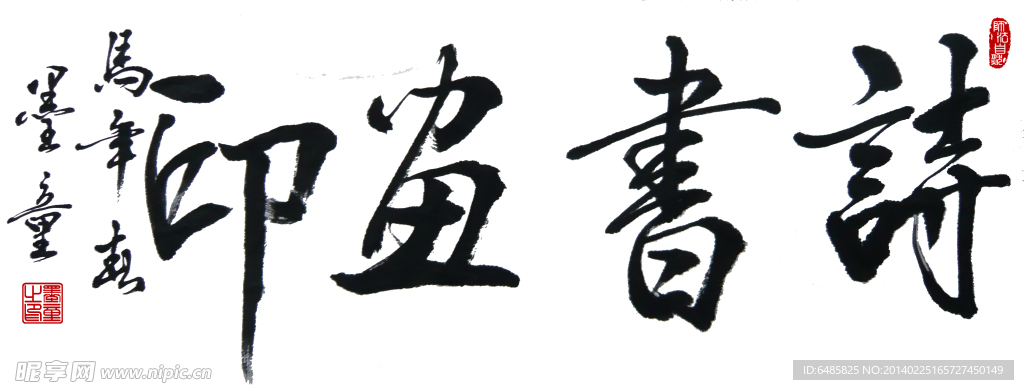 詩書畫印
馬年春
墨童
師法自然
墨童之印
昵享网 www.nipic.cn
ID:6485825 NO:20140225165727450149